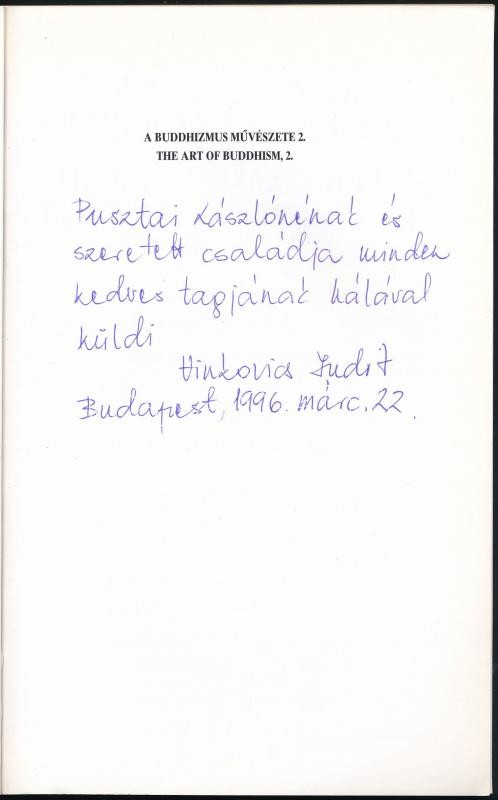 A BUDDHIZMUS MŰVÉSZETE 2.
THE ART OF BUDDHISM, 2.
Pusztai Lászlónénak és
szeretett családja minden
kedves tagjának hálával
küldi
Vinkovics Judit
Budapest, 1996. márc. 22.